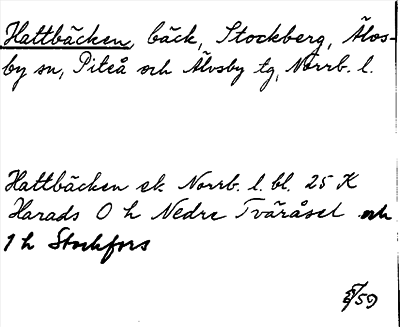 Hattbäcken, bäck, Stockberg, Älvs-
by sn, Piteå och Älvsby tg, Norrb. l.
Hattbäcken ek. Norrb. l. bl. 25 K
Harads O h Nedre Tväråsel och
1 h Stockfors
/59